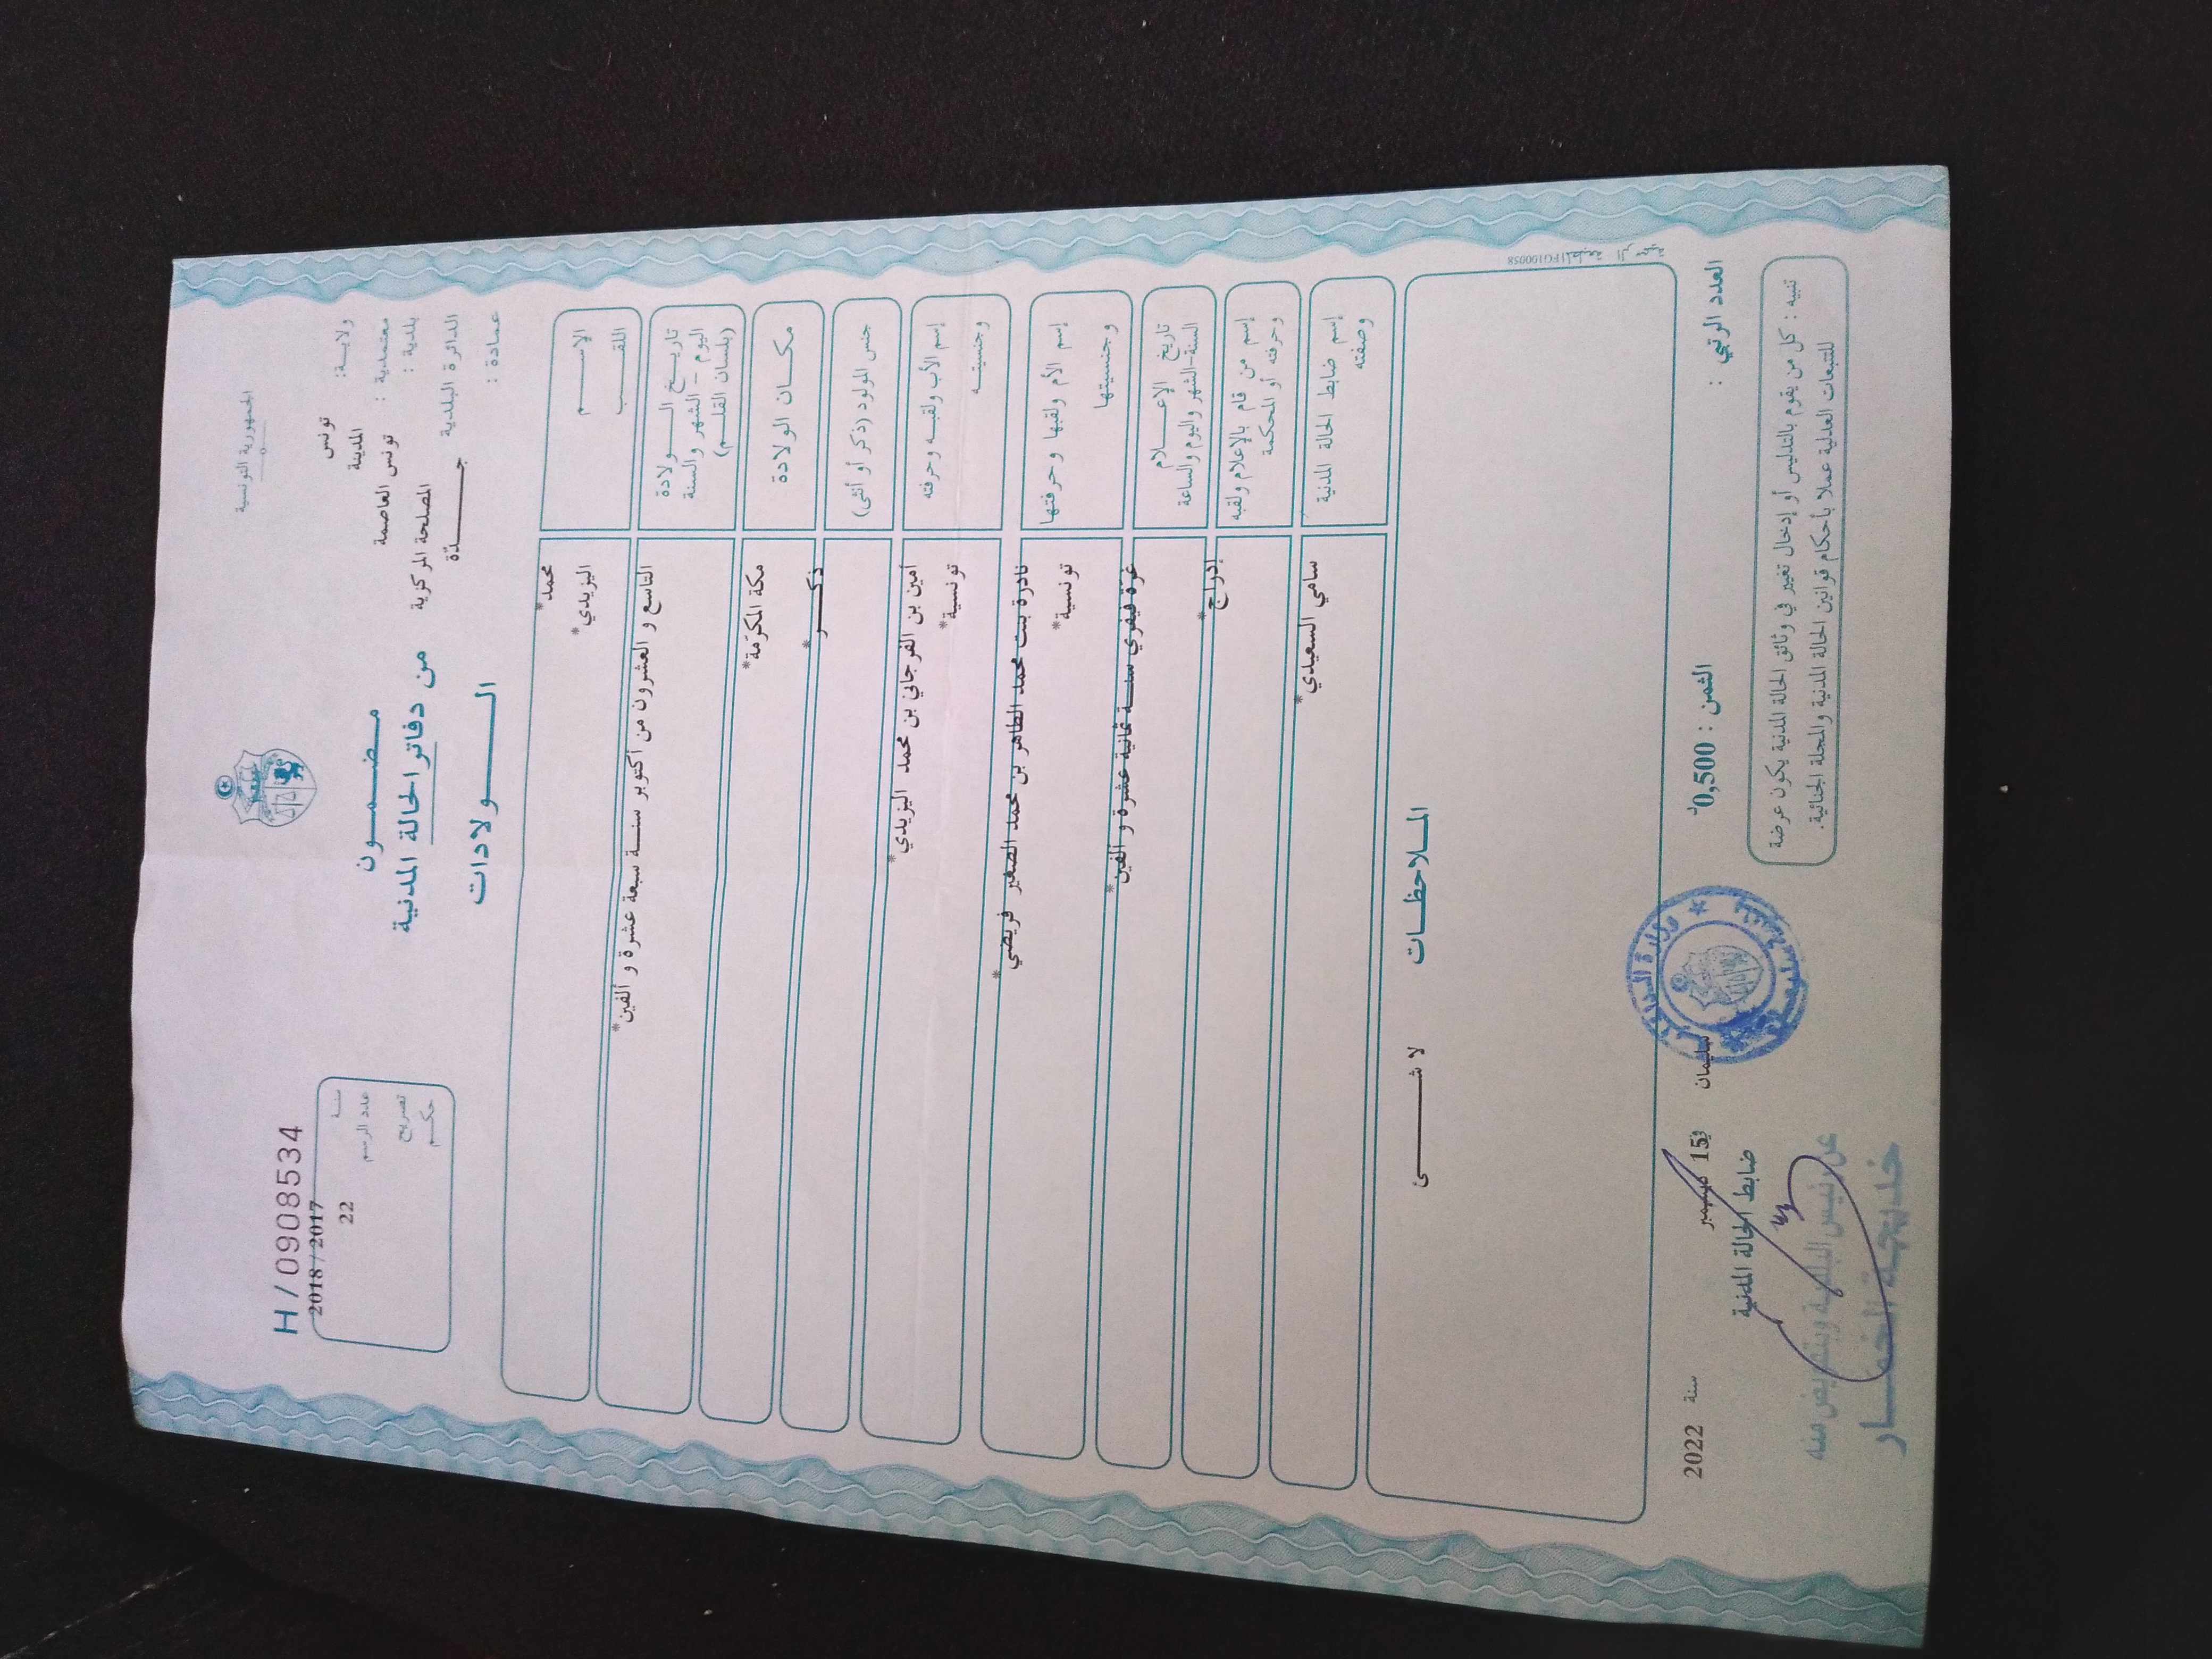 الجمهورية التونسية
H / 0908534
ولايــة: تونس
معتمدية : المدينة
بلدية : تونس العاصمة
الدائرة البلدية المصلحة المركزية
عمادة : جــــــدّة
مضـــمـــون
من دفاتر الحالة المدنية
الـــــولادات
سنـــة 2018 / 2017
عدد الرسم 22
تصريح
حكـــم
الإســـــم محمد*
اللقــــب اليزيدي*
تاريـــخ الـــــولادة
(اليوم – الشهر والسنة
(بلسان القلـــم)
التاسع و العشرون من أكتوبر سنـــة سبعة عشرة و ألفين*
مكـــان الولادة مكة المكرّمة*
جنس المولود (ذكر أو أنثى) ذكـــــر*
إسم الأب ولقبـــه وحرفته أمين بن الفرجاني بن محمد اليزيدي*
وجنسيتـــه تونسية*
إسم الأم ولقبها وحرفتها نادرة بنت محمد الطاهر بن محمد الصغير فريضي*
وجنسيتها تونسية*
تاريخ الإعـــــلام
السنة-الشهر واليوم والساعة
غرّة فيفري سنـــة ثمانية عشرة و ألفين*
إسم من قام بالإعلام ولقبه
وحرفته أو المحكمة
إدراج*
إسم ضابط الحالة المدنية
وصفته
سامي السعيدي*
المـــلاحظـــات
لا شـــــــئ
العدد الرتبي :
الثمن : 0,500د
سليمان في 15 ديسمبر سنة 2022
ضابط الحالة المدنية
تنبيه : كل من يقوم بالتدليس أو إدخال تغيير في وثائق الحالة المدنية يكون عرضة
للتتبعات العدلية عملا بأحكام قوانين الحالة المدنية والمجلة الجنائية.
عن رئيس البلدية وبتفويض منه
خديجة الخمـــار